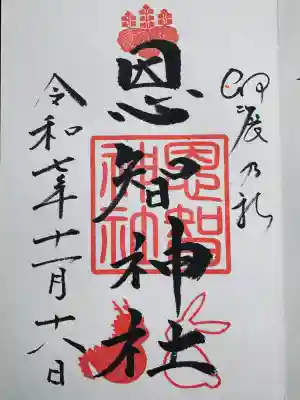 乃礼
恩智神社
恩智
神社
令和七年十一月十八日